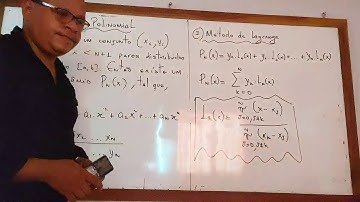 Polinomial
um conjunto (x₀, y₀)
x < n+1 pares distribuídos
[a, b]. Então existe um
Pₙ(x), tal que,
a₁ x¹ + a₂ x² + ... + aₙ xⁿ
... xₙ
... yₙ
② Metodo de lagrange
Pₙ(x) = y₀ L₀(x) + y₁ L₁(x) + ... + yₙ Lₙ(x)
Pₙ(x) = Σ yₖ Lₖ(x)
n
k=0
Lₖ(x) =
n
π (x - xⱼ)
j=0, j≠k
n
π (xₖ - xⱼ)
j=0, j≠k